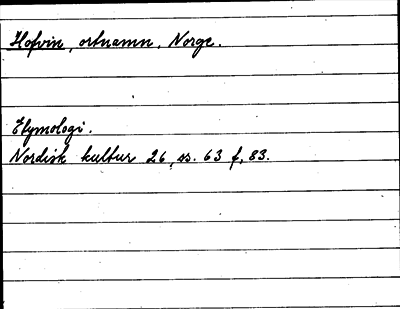 Hofvin, ortnamn, Norge.
Etymologi.
Nordisk kultur 26, ss. 63 f, 83.